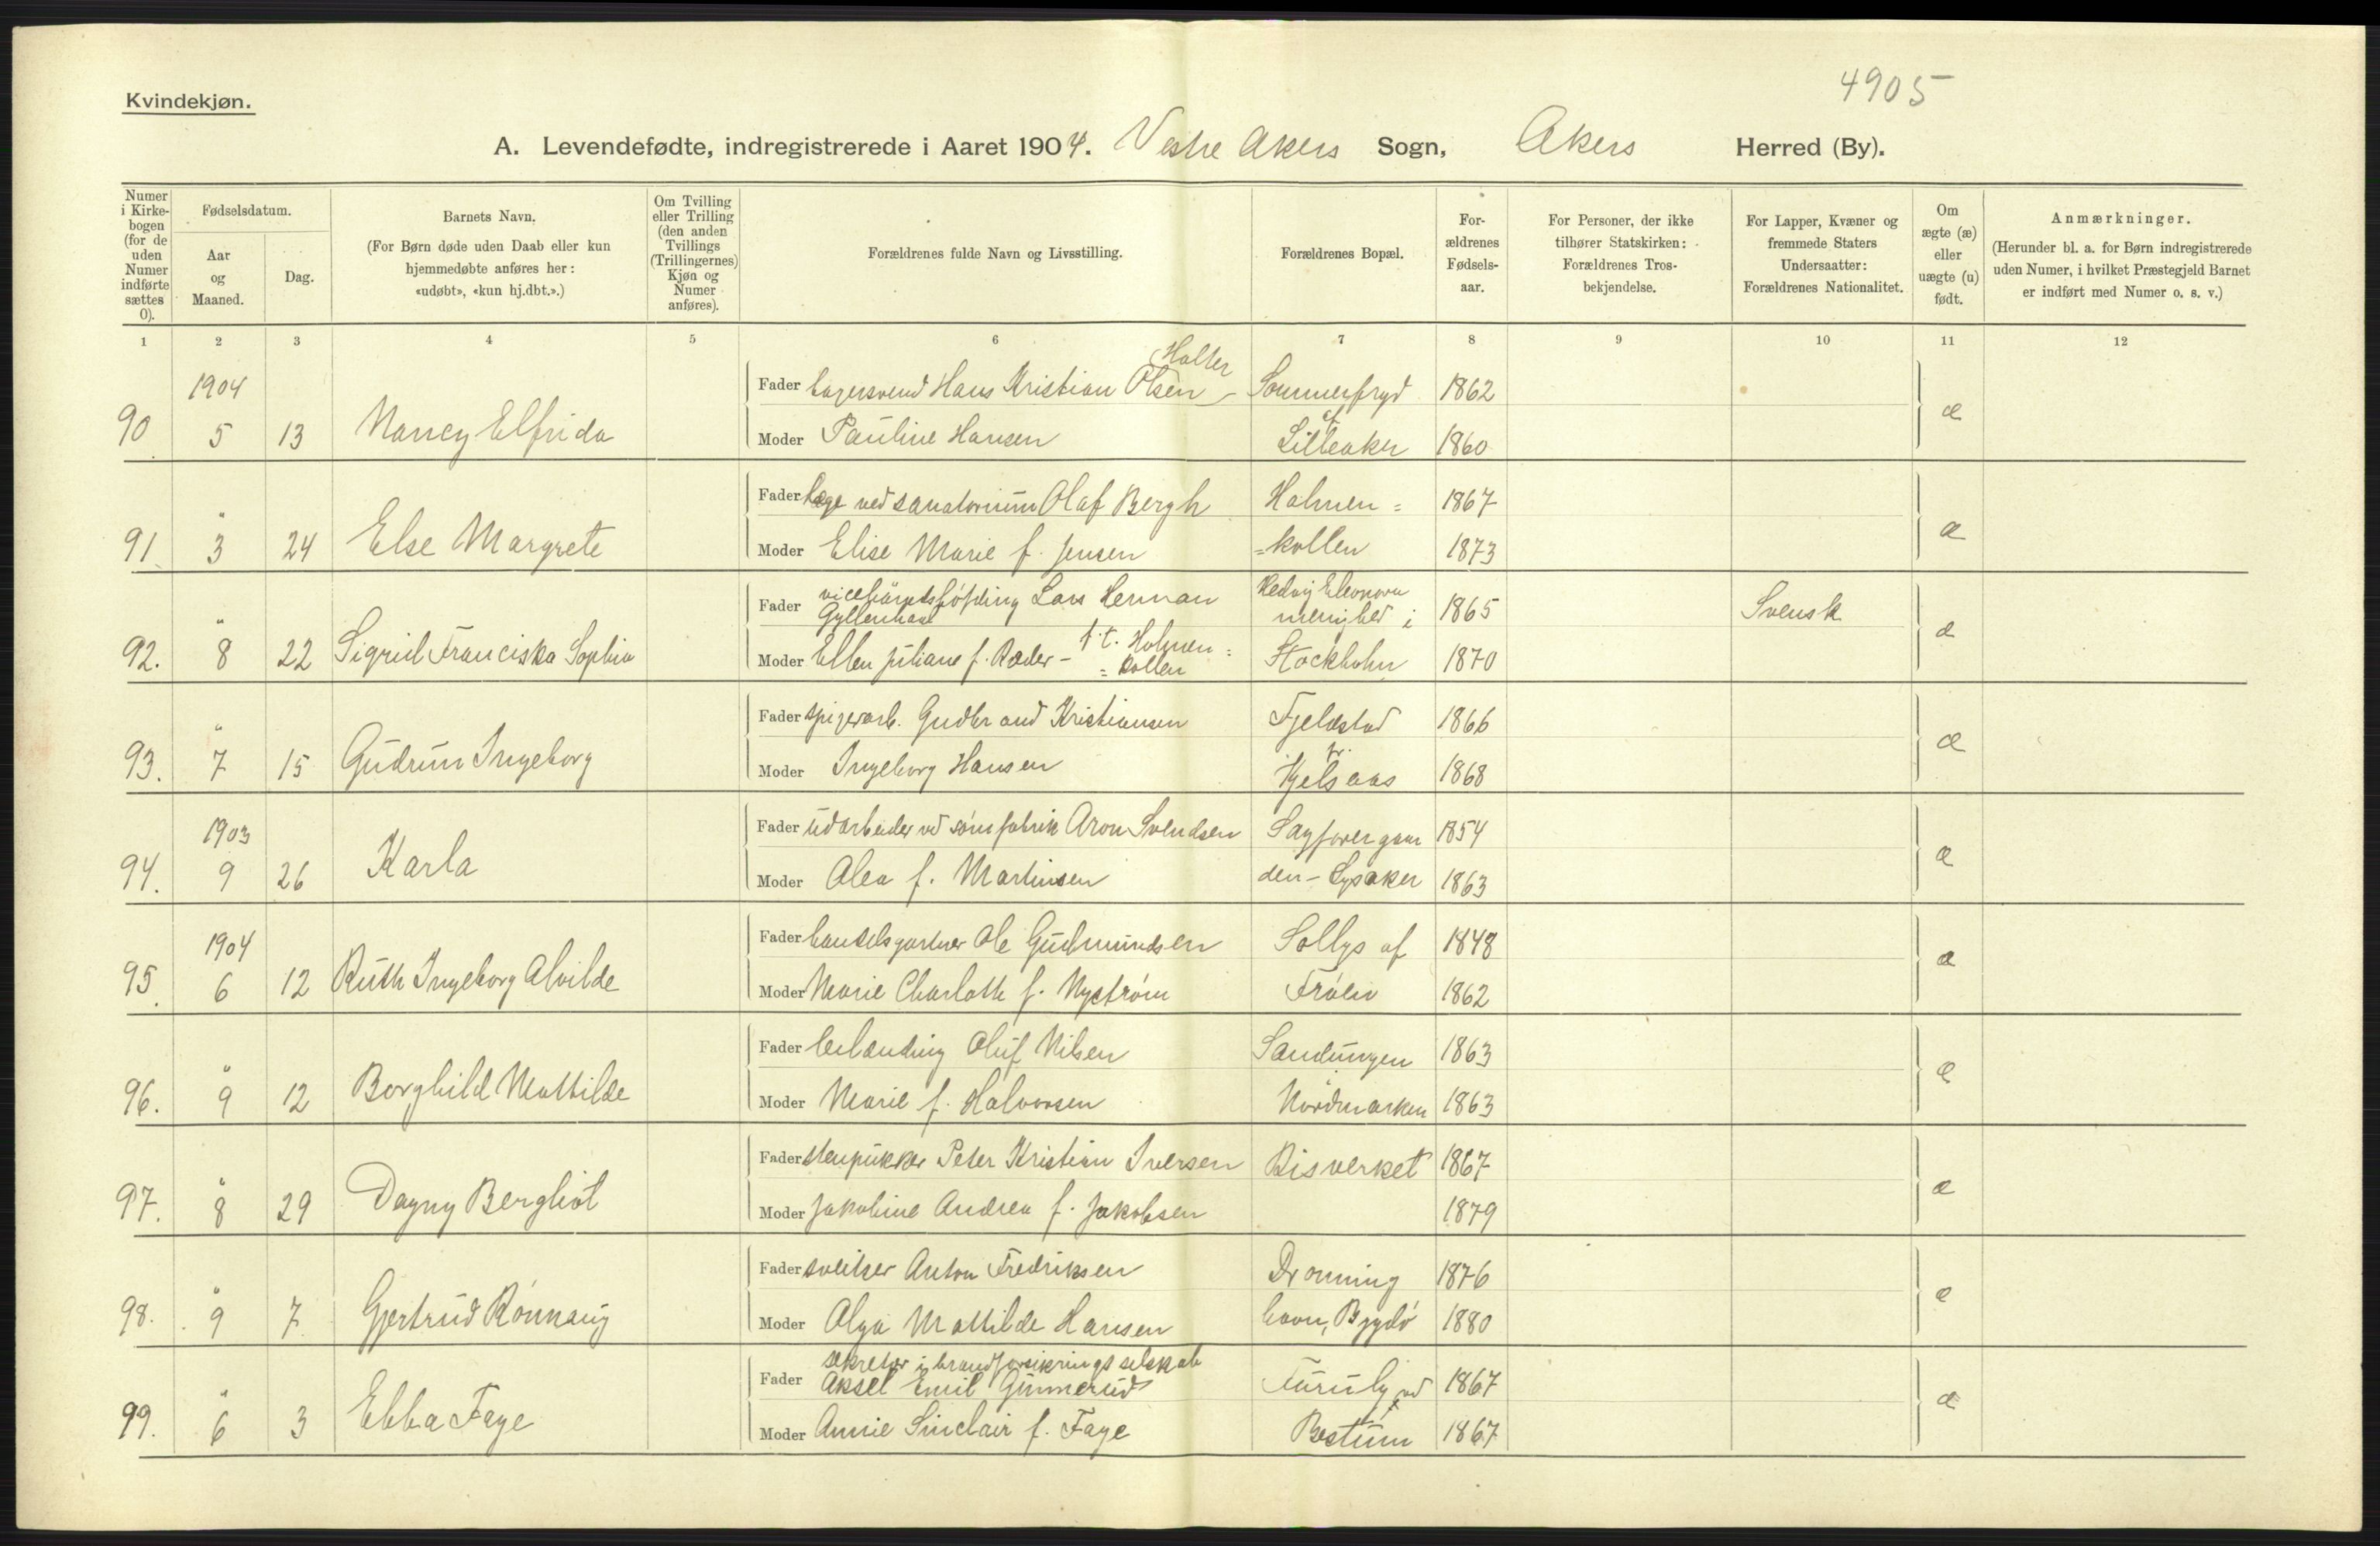 4905
Kvindekjøn.
A. Levendefødte, indregistrerede i Aaret 1904. Vestre Akers Sogn, Akers Herred (By).
Numer i Kirkebogen (for de uden Numer indførte sættes 0).
Fødselsdatum.
Aar og Maaned.
Dag.
Barnets Navn.
(For Børn døde uden Daab eller kun hjemmedøbte anføres her: «udøbt», «kun hj.dbt.».)
Om Tvilling eller Trilling (den anden Tvillings (Trillingernes) Kjøn og Numer anføres).
Forældrenes fulde Navn og Livsstilling.
Forældrenes Bopæl.
Forældrenes Fødselsaar.
For Personer, der ikke tilhører Statskirken: Forældrenes Trosbekjendelse.
For Lapper, Kvæner og fremmede Staters Undersaatter: Forældrenes Nationalitet.
Om ægte (æ) eller uægte (u) født.
Anmærkninger.
(Herunder bl. a. for Børn indregistrerede uden Numer, i hvilket Præstegjeld Barnet er indført med Numer o. s. v.)
1 2 3 4 5 6 7 8 9 10 11 12
1904 Fader bagersvend Hans Kristian Olsen Holter Sommerfryd 1862
90 5 13 Nancy Elfrida Moder Pauline Hansen af Lilleaker 1860 æ
Fader læge ved sanatorium Olaf Bergh Holmen= 1867
91. " 3 24 Else Margrete Moder Elise Marie f. Jensen =kollen 1873 æ
Fader vicehäradshöfding Lars Herman Gyllenhaal Hedvig Eleonora menighed i 1865 Svensk
92. " 8 22 Sigrid Franciska Sophia Moder Ellen Juliane f. Ræder – t. t. Holmen= =kollen Stockholm 1870 æ
Fader spigerarb. Gudbrand Kristiansen Fjeldstad 1866
93. " 7 15 Gudrun Ingeborg Moder Ingeborg Hansen pr. Kjelsaas 1868 æ
1903 Fader udarbeider ved sømfabrik Aron Svendsen Sagførergaar 1854
94. 9 26 Karla Moder Alea f. Martinsen den – Lysaker 1863 æ
1904 Fader handelsgartner Ole Gudmundsen Sollys af 1848
95. 6 12 Ruth Ingeborg Alvilde Moder Marie Charlotte f. Nystrøm Frøen 1862 æ
Fader leilænding Oluf Nilsen Sandungen 1863
96. " 9 12 Borghild Mathilde Moder Marie f. Halvorsen Nordmarken 1863 æ
Fader stenpukker Peter Kristian Iversen Risverket 1867
97. " 8 29 Dagny Bergliot Moder Jakobine Andrea f. Jakobsen 1879 æ
Fader sveitser Anton Fredriksen Dronning 1876
98. " 9 7 Gjertrud Rønnaug Moder Olga Mathilde Hansen havn, Bygdø 1880 æ
Fader sekretær i brandforsikringsselskab Aksel Emil Gunnerud Furuly ved 1867
99. " 6 3 Ebba Faye Moder Annie Sinclair f. Faye Bestum 1867 æ